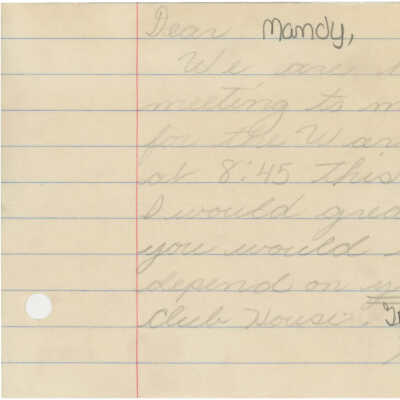 Dear Mandy,
We are
meeting to m
for the War
at 8:45 This
I would grea
you would
depend on y
Club House